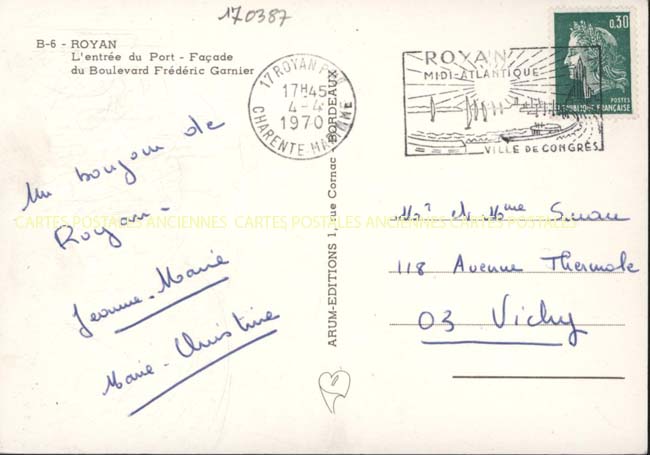 170387
B-6 - ROYAN
L'entrée du Port - Façade
du Boulevard Frédéric Garnier
17 ROYAN
17H45
4-4
1970
CHARENTE-MARITIME
ROYAN
MIDI-ATLANTIQUE
VILLE DE CONGRÈS
0,30
POSTES
RÉPUBLIQUE FRANÇAISE
Un bonjour de
Royan
Jeanne-Marie
Marie-Christine
ARUM-EDITIONS 1, rue Cornac - BORDEAUX
CARTES POSTALES ANCIENNES CARTES POSTALES ANCIENNES CARTES POSTALES
Mr et Mme
118 Avenue Thermale
03 Vichy